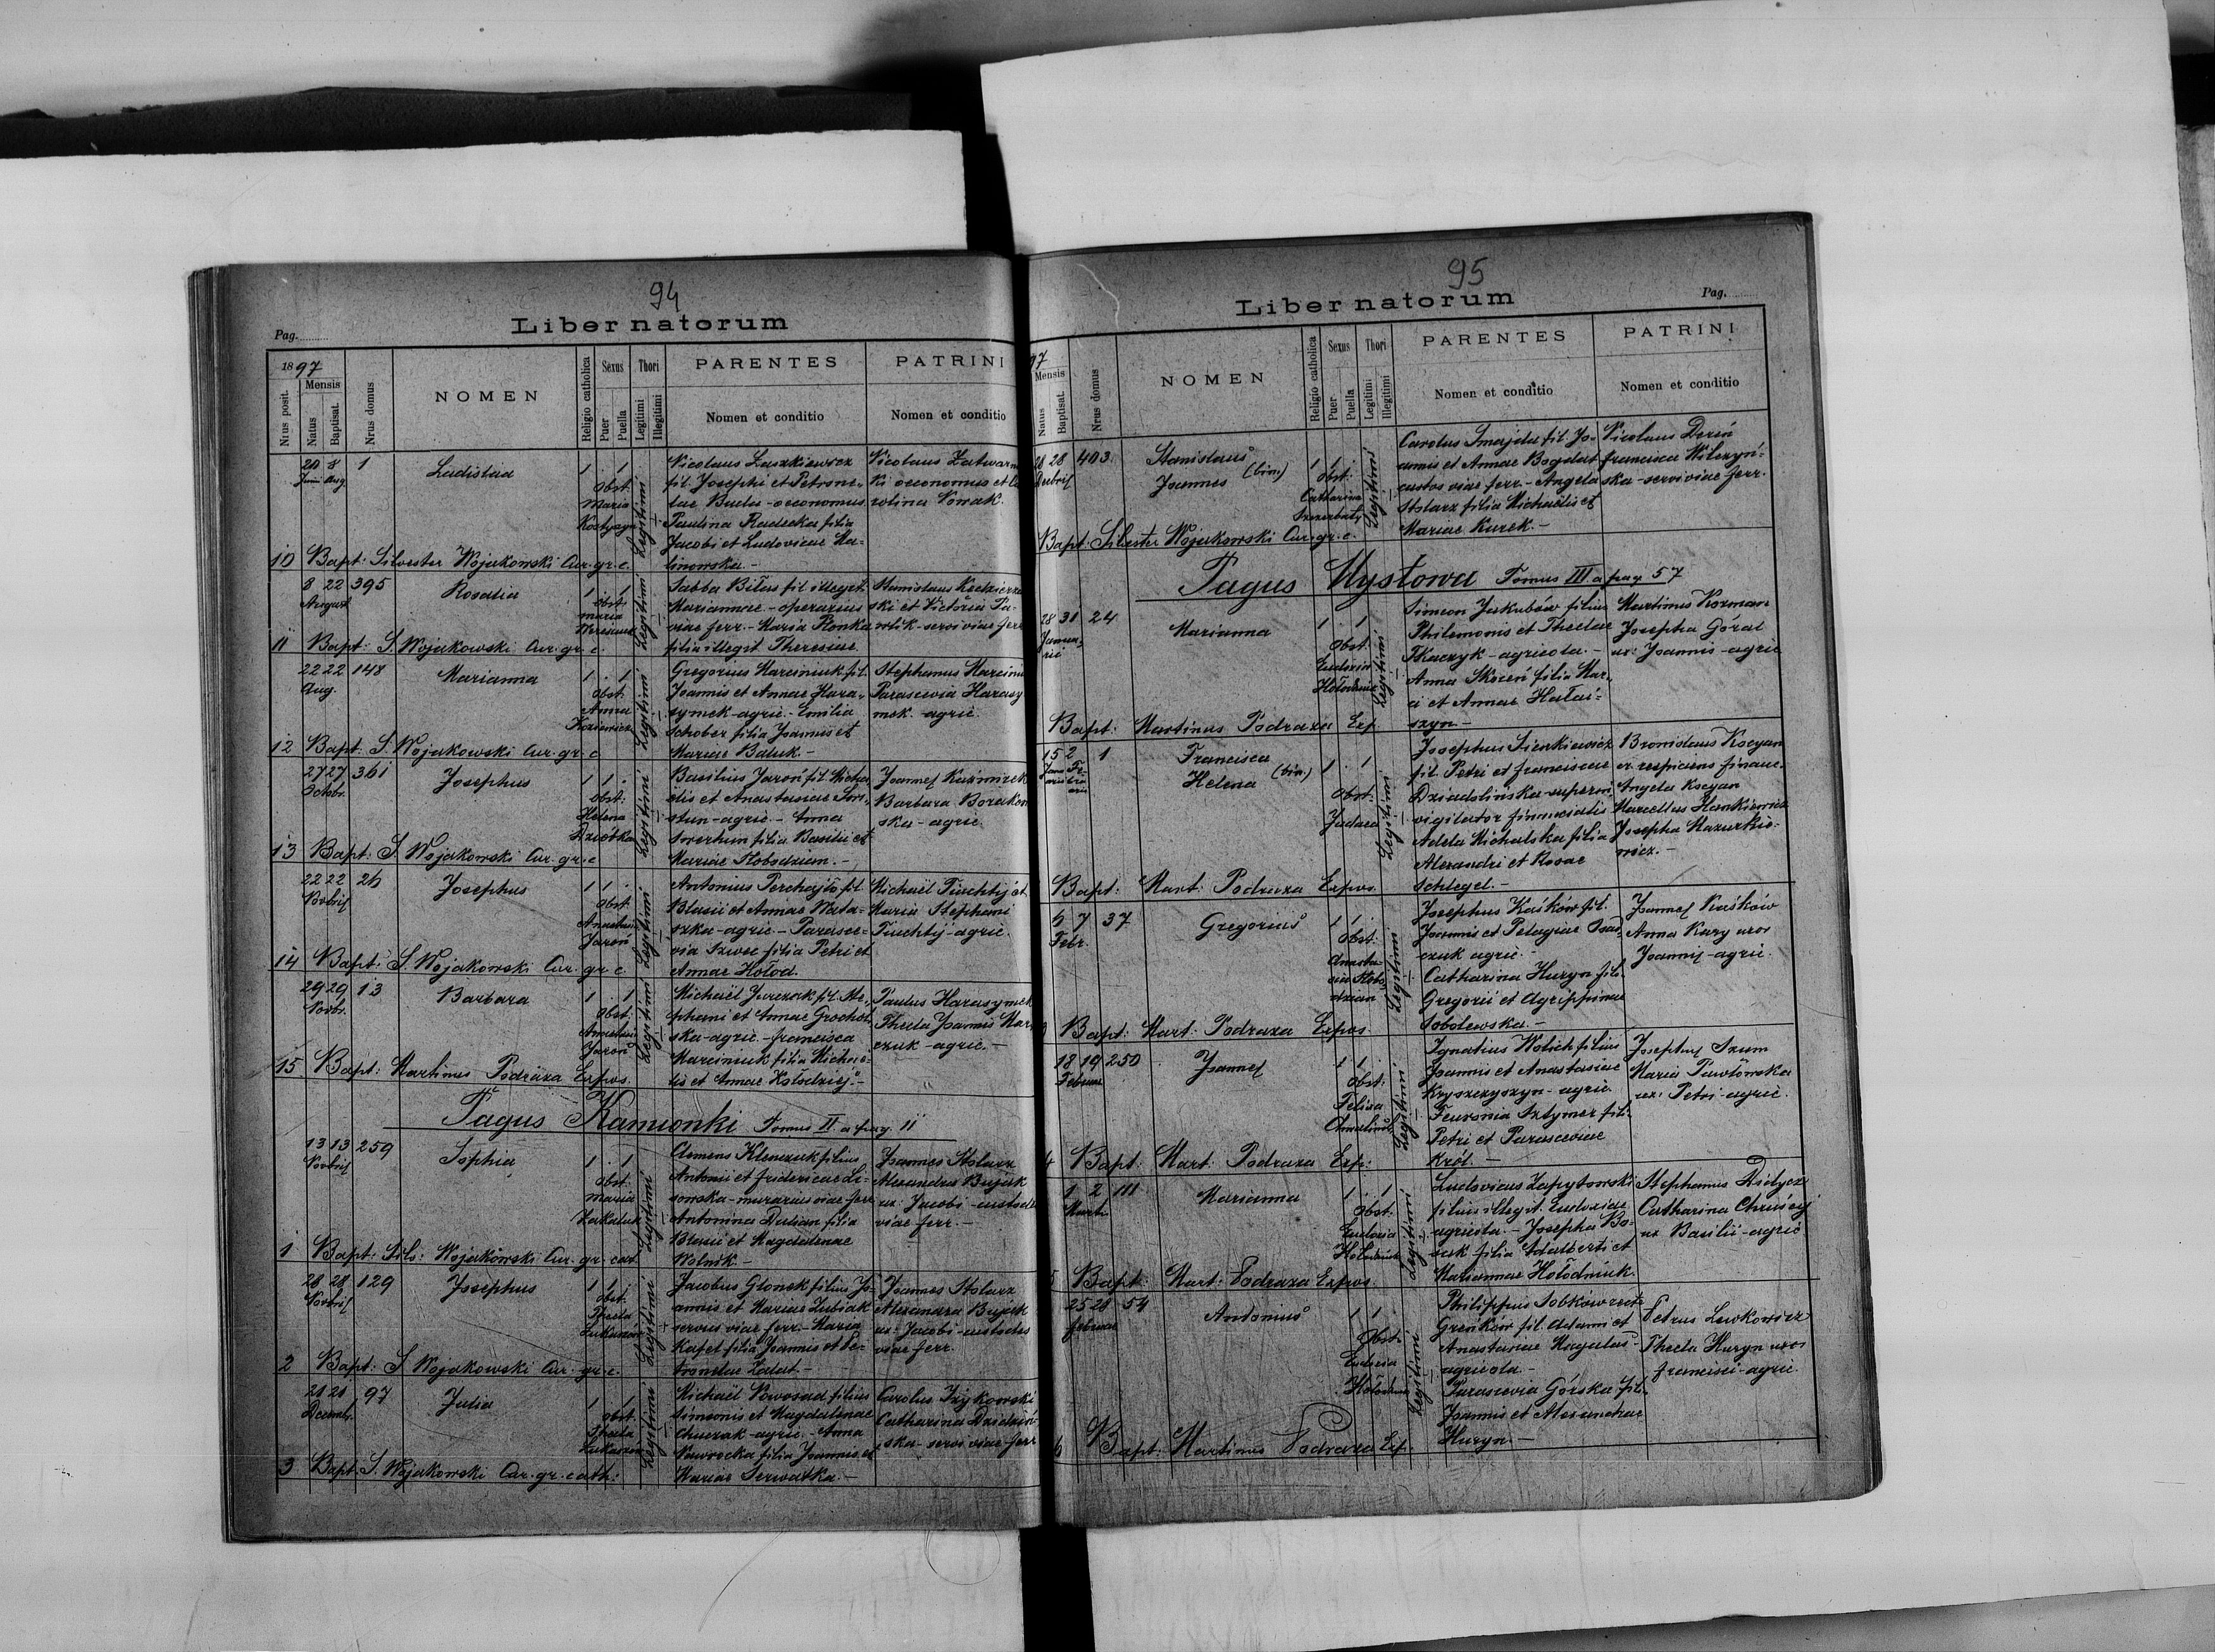 94
Liber natorum
Pag.
1897
Nrus posit.
Mensis
Natus
Baptisat.
Nrus domus
NOMEN
Religio catholica
Sexus
Puer
Puella
Thori
Legitimi
Illegitimi
PARENTES
Nomen et conditio
PATRINI
Nomen et conditio
20 8 1 Ladislaa 1 . 1 Nicolaus Laszkiewicz Nicolaus
Juni Aug obst: fil. Josephi et Petrone-
Maria lae Buda - oeconomus rolina Nowak.
Paulina Radecka filia
Legitimi
Jacobi et Ludovicae Ma-
10 Bapt: Silvester Wojakowski Cur. gr. c. linowska. -
8 22 395 Rosalia 1 . 1 Sabba Bilas fil illegit.
August obst: Mariannae - operarius ski et Victoria Pa-
Maria viae ferr. - Maria Ronka wlik - servi viae ferr
Legitimi
11 Bapt: S. Wojakowski Cur. gr. c. filia illegit Theresiae
22 22 148 Marianna 1 . 1 Gregorius Marciniuk fil. Stephanus
Aug. obst: Joannis et Annae Hara- Parascevia Harasy
Anna symek - agric. - Emilia mek - agric.
Schober filia Joannis et
Legitimi
12 Bapt: S. Wojakowski Cur. gr. c Mariae Baluk -
27 27 361 Josephus 1 1 . Basilius Jaroń fil. Micha Joannes
Octobr. obst: elis et Anastasiae Barbara
Helena - agric - Anna ska - agric.
filia Basilii et
Legitimi
13 Bapt: S. Wojakowski Cur. gr. c Mariae -
22 22 26 Josephus 1 1 . Antonius fil. Michaël et
Novbris obst: Blasii et Annae Mata- Maria Stephani
szka - agric. - Parasce- - agric.
Jaroń via Szwec filia Petri et
Legitimi
14 Bapt: S. Wojakowski Cur. gr. c. Annae Hołod.
29 29 13 Barbara 1 . 1 Michaël Jurczak fil. Ste- Paulus Harasymek
Novbr. obst: phani et Annae Grochol- Thecla Joannis Mar
ska - agric - francisca czuk - agric. -
Jaroń Marciniuk filia Michaë-
Legitimi
15 Bapt: Martinus Podraza Expos. lis et Annae Kołodziej. -
Pagus Kamionki Tomus II a pag. 11
13 13 259 Sophia 1 . 1 Clemens Klenczuk filius Joannes Stolarz
Novbris obst: Antonii et fridericae Li- Alexandra Bujak
Maria sonska - murarius viae ferr. ux: Jacobi - custodis
Antonina Dulian filia viae ferr. -
Blasii et Magdalenae
Legitimi
1 Bapt: Silv: Wojakowski Cur. gr. cat. Wolnik -
28 28 129 Josephus 1 1 . Jacobus Glonek filius Jo- Joannes Stolarz
Novbris obst: annis et Mariae Zubiak Alexandra Bujak
Thecla servus viae ferr. - Maria ux: Jacobi - custodis
Kapel filia Joannis et Pe- viae ferr.
Legitimi
2 Bapt: S. Wojakowski Cur. gr. c. tronelae -
21 21 97 Julia 1 . 1 Michaël Nowosad filius Carolus
Decemb. obst: Simeonis et Magdalenae Catharina
Thecla - agric. - Anna ska - servi viae ferr
Nawrocka filia Joannis et
Legitimi
3 Bapt: S. Wojakowski Cur. gr. cath: Mariae Serwatka. -
95
Liber natorum
Pag.
97
Mensis
Natus
Baptisat.
Nrus domus
NOMEN
Religio catholica
Sexus
Puer
Puella
Thori
Legitimi
Illegitimi
PARENTES
Nomen et conditio
PATRINI
Nomen et conditio
28 28 403 Stanislaus 1 1 . Carolus Smajda fil. Jo- Nicolaus Deren
Joannes (bin.) obst: annis et Annae Bogdat francisca Wilczyń-
Catharina custos viae ferr. - Angela ska - servi viae ferr.
Stolarz filia Michaëlis et
Legitimi
Mariae Kurek. -
Bapt: Silvester Wojakowski Cur. gr. c.
Pagus Mysłowa Tomus III a pag 57
28 31 24 Marianna 1 . 1 Simeon Jakubów filius Martinus Kozman
Janua- obst: Philemonis et Theclae Josepha Góral
rii Tkaczyk - agricola. - ux: Joannis - agric
Anna filia Mar-
Legitimi
ci et Annae
Bapt: Martinus Podraza Exp. szyn -
15 2 1 Francisca 1 . 1 Josephus Sienkiewicz Bronislaus Kocyan
Helena (bin.) fil. Petri et franciscae er. respiciens financ.
obst: - superin Angela Kocyan
vigilator financialis Marcellus Hankiewicz
Adela Michalska filia Josepha Mazurkie-
Legitimi
Alexandri et Rosae wicz. -
Bapt: Mart: Podraza Expos. Schlegel. -
6 7 37 Gregorius 1 1 . Josephus Kaśków fil. Joannes Kaśków
Febr. obst: Joannis et Pelagiae Anna Kury uxor
czuk agric. - Joannis - agric.
Catharina Huzyn filia
Legitimi
Gregorii et Agrippinae
3 Bapt: Mart: Podraza Expos. Sobolewska. -
18 19 250 Joannes 1 1 . Ignatius Wolich filius Josephus Szum
Februar obst: Joannis et Anastasiae Maria Pawłowska
Kryszczyszyn - agric. ux: Petri - agric.
Feuronia Sztymer fil.
Legitimi
Petri et Parasceviae
4 Bapt: Mart: Podraza Exp: Król. -
1 2 111 Marianna 1 . 1 Ludovicus Zapytowski Stephanus Didycz
Martii obst: filius illegit. Eudoxiae Catharina
Eudocia agricola. - Josepha Bo- ux Basilii - agric
filia Adalberti et
Legitimi
5 Bapt: Mart: Podraza Expos. Mariannae Hołodniuk.
25 28 54 Antonius 1 1 . Philippus Sobków recte Petrus Lewkowicz
februar obst: Greńków fil. Adami et Thecla Huzyn uxor
Eudocia Anastasiae Magalas - francisci - agric.
agricola. -
Parascevia Górska fil.
Legitimi
Joannis et Alexandrae
6 Bapt. Martinus Podraza Exp. Huzyn. -